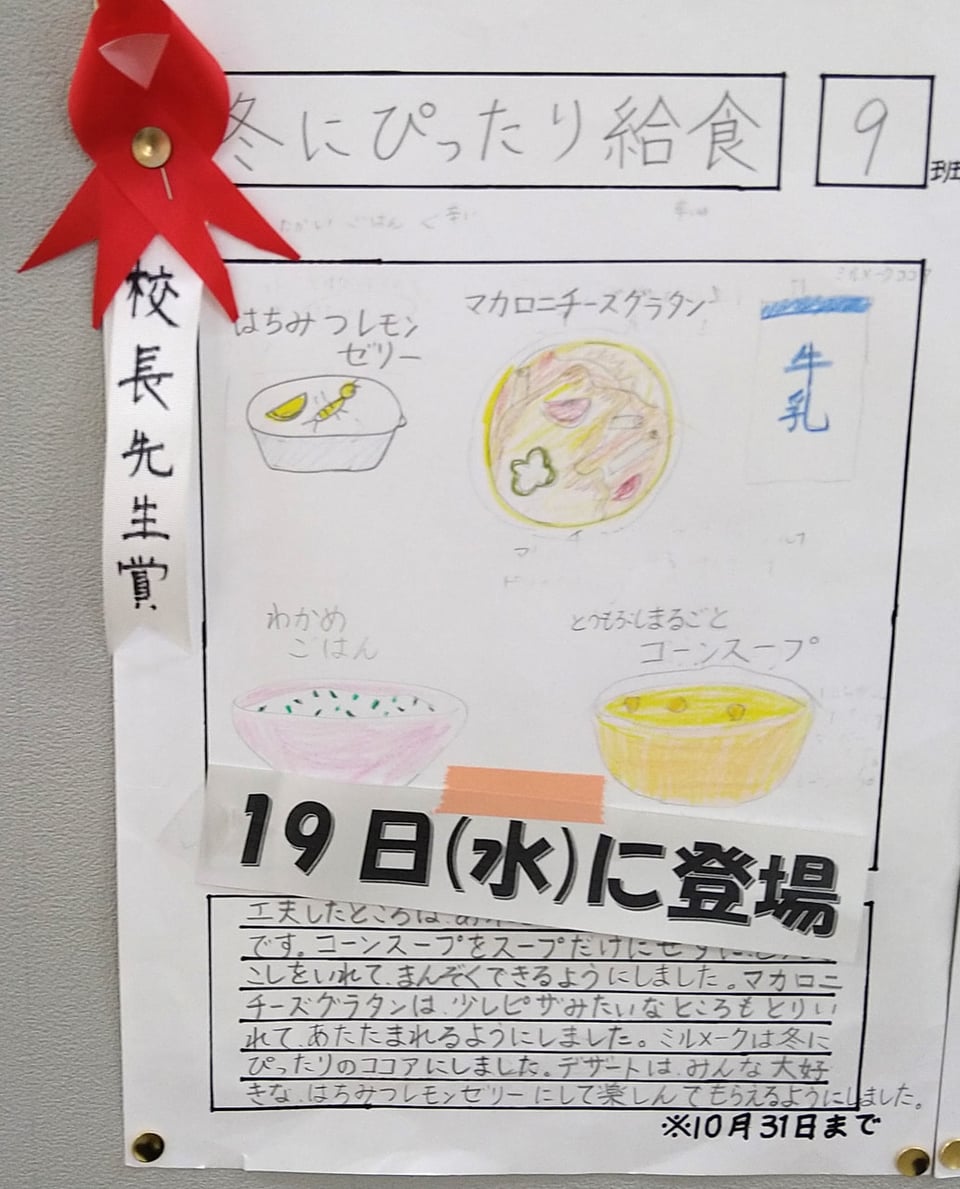 冬にぴったり給食
9
班
校長先生賞
はちみつレモン
ゼリー
マカロニチーズグラタン
牛乳
わかめ
ごはん
とうもろこしまるごと
コーンスープ
19日(水)に登場
工夫したところは、
です。コーンスープをスープだけにせずに、
こしをいれて、まんぞくできるようにしました。マカロニ
チーズグラタンは、少しピザみたいなところもとりい
れて、あたたまれるようにしました。ミルメークは冬に
ぴったりのココアにしました。デザートは、みんな大好
きな、はちみつレモンゼリーにして楽しんでもらえるようにしました。
※10月31日まで